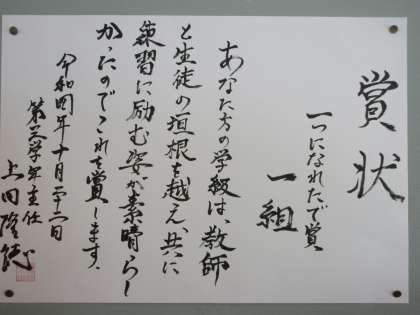 賞状
一つになれたで賞
一組
あなた方の学級は、教師
と生徒の垣根を越え、共に
練習に励む姿が素晴らし
かったのでこれを賞します。
令和四年十月二十二日
第三学年主任
上田隆